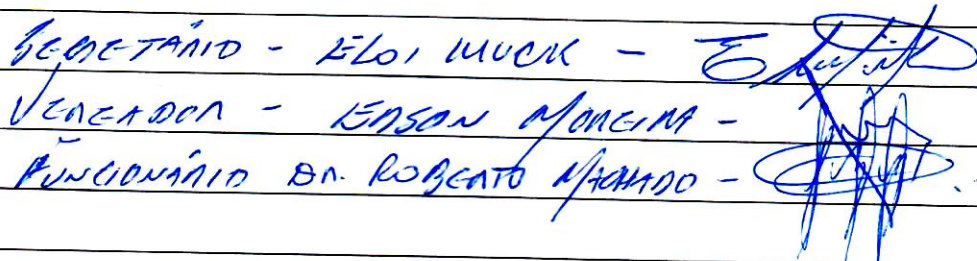 SECRETÁRIO - ELOI MUCK -
VEREADOR - EDSON MOREIRA -
FUNCIONÁRIO DR. ROBERTO MACHADO -